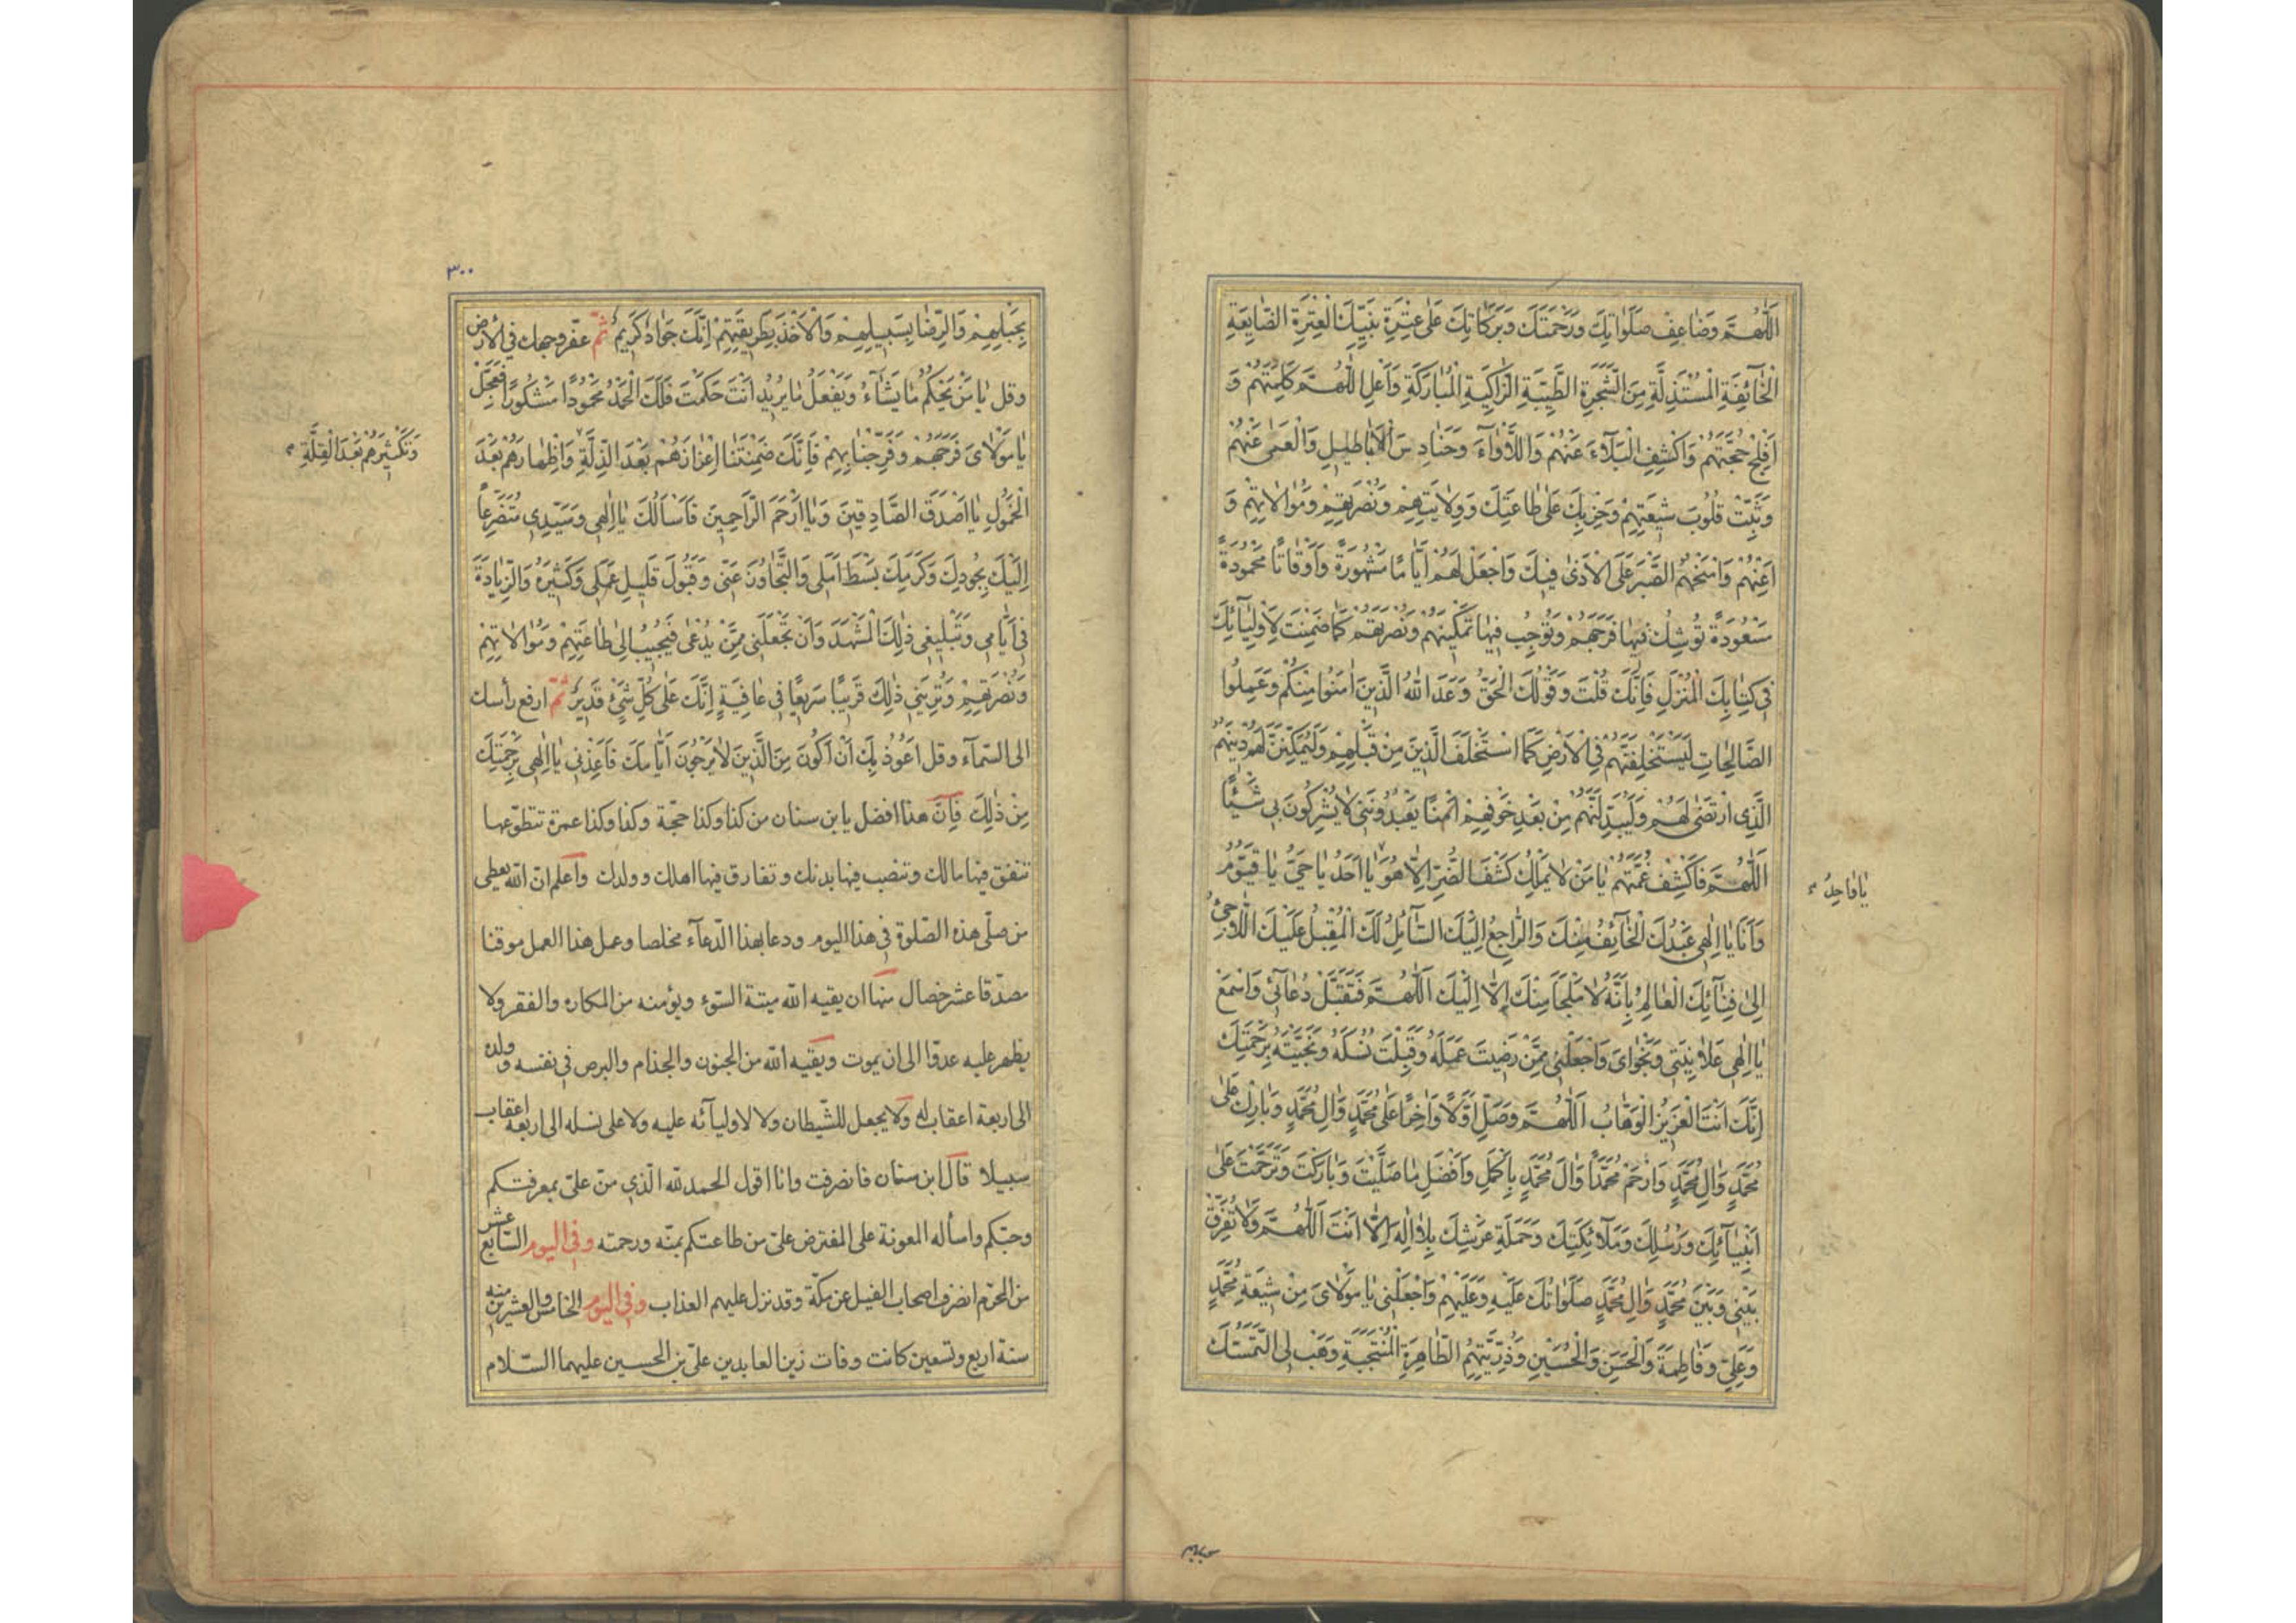 اَللّٰهُمَّ وَضَاعِفْ صَلَوٰاتِكَ وَرَحْمَتَكَ وَبَرَكٰاتِكَ عَلىٰ عِتْرَةِ نَبِيِّكَ الْعِتْرَةِ الضّٰايِعَةِ
الْخٰٓائِفَةِ الْمُسْتَذِلَّةِ مِنَ الشَّجَرَةِ الطَّيِّبَةِ الزّٰاكِيَةِ الْمُبٰارَكَةِ وَاَعْلِ اللّٰهُمَّ كَلِمَتَهُمْ وَ
اَفْلِجْ حُجَّتَهُمْ وَاكْشِفِ الْبَلٰٓاءَ عَنْهُمْ وَاللَّاْوٰاءَ وَحَنٰادِسَ الْاَبٰاطِيلِ وَالْعَمىٰ عَنْهُمْ
وَثَبِّتْ قُلُوبَ شِيعَتِهِمْ وَحِزْبِكَ عَلىٰ طٰاعَتِكَ وَوِلٰايَتِهِمْ وَنُصْرَتِهِمْ وَمُوٰالٰاتِهِمْ وَ
اَعِنْهُمْ وَامْنَحْهُمُ الصَّبْرَ عَلَى الْاَذىٰ فِيكَ وَاجْعَلْ لَهُمْ اَيّٰامًا مَشْهُورَةً وَاَوْقٰاتًا مَحْمُودَةً
مَسْعُودَةً تُوشِكُ فِيهٰا فَرَجَهُمْ وَتُوجِبُ فِيهٰا تَمْكِينَهُمْ وَنُصْرَتَهُمْ كَمٰا ضَمِنْتَ لِاَوْلِيٰٓائِكَ
فِي كِتٰابِكَ الْمُنْزَلِ فَاِنَّكَ قُلْتَ وَقَوْلُكَ الْحَقُّ وَعَدَ اللهُ الَّذِينَ اٰمَنُوا مِنْكُمْ وَعَمِلُوا
الصّٰالِحٰاتِ لَيَسْتَخْلِفَنَّهُمْ فِي الْاَرْضِ كَمَا اسْتَخْلَفَ الَّذِينَ مِنْ قَبْلِهِمْ وَلَيُمَكِّنَنَّ لَهُمْ دِينَهُمُ
الَّذِي ارْتَضىٰ لَهُمْ وَلَيُبَدِّلَنَّهُمْ مِنْ بَعْدِ خَوْفِهِمْ اَمْنًا يَعْبُدُونَنِي لٰا يُشْرِكُونَ بِي شَيْئًا
اَللّٰهُمَّ فَاكْشِفْ غُمَّتَهُمْ يٰا مَنْ لٰا يَمْلِكُ كَشْفَ الضُّرِّ اِلّٰا هُوَ يٰا اَحَدُ يٰا حَيُّ يٰا قَيُّومُ
يٰا وٰاحِدُ
وَاَنَا يٰا اِلٰهِي عَبْدُكَ الْخٰٓائِفُ مِنْكَ وَالرّٰاجِعُ اِلَيْكَ السّٰٓائِلُ لَكَ الْمُقْبِلُ عَلَيْكَ اللّٰاجِئُ
اِلىٰ فِنٰٓائِكَ الْعٰالِمُ بِاَنَّهُ لٰا مَلْجَاَ مِنْكَ اِلّٰا اِلَيْكَ اَللّٰهُمَّ فَتَقَبَّلْ دُعٰٓائِي وَاسْمَعْ
يٰا اِلٰهِي عَلٰانِيَتِي وَنَجْوٰايَ وَاجْعَلْنِي مِمَّنْ رَضِيتَ عَمَلَهُ وَقَبِلْتَ نُسُكَهُ وَنَجَّيْتَهُ بِرَحْمَتِكَ
اِنَّكَ اَنْتَ الْعَزِيزُ الْوَهّٰابُ اَللّٰهُمَّ وَصَلِّ اَوَّلًا وَاٰخِرًا عَلىٰ مُحَمَّدٍ وَاٰلِ مُحَمَّدٍ وَبٰارِكْ عَلىٰ
مُحَمَّدٍ وَاٰلِ مُحَمَّدٍ وَارْحَمْ مُحَمَّدًا وَاٰلَ مُحَمَّدٍ بِاَكْمَلِ وَاَفْضَلِ مٰا صَلَّيْتَ وَبٰارَكْتَ وَتَرَحَّمْتَ عَلىٰ
اَنْبِيٰٓائِكَ وَرُسُلِكَ وَمَلٰٓائِكَتِكَ وَحَمَلَةِ عَرْشِكَ بِلٰا اِلٰهَ اِلّٰا اَنْتَ اَللّٰهُمَّ وَلٰا تُفَرِّقْ
بَيْنِي وَبَيْنَ مُحَمَّدٍ وَاٰلِ مُحَمَّدٍ صَلَوٰاتُكَ عَلَيْهِ وَعَلَيْهِمْ وَاجْعَلْنِي يٰا مَوْلٰايَ مِنْ شِيعَةِ مُحَمَّدٍ
وَعَلِيٍّ وَفٰاطِمَةَ وَالْحَسَنِ وَالْحُسَيْنِ وَذُرِّيَّتِهِمُ الطّٰاهِرَةِ الْمُنْتَجَبَةِ وَهَبْ لِيَ التَّمَسُّكَ
٣٠٠
بِحَبْلِهِمْ وَالرِّضٰا بِسَبِيلِهِمْ وَالْاَخْذَ بِطَرِيقَتِهِمْ اِنَّكَ جَوٰادٌ كَرِيمٌ ثمّ عفّر وجهك في الأرض
وقل يٰا مَنْ يَحْكُمُ مٰا يَشٰٓاءُ وَيَفْعَلُ مٰا يُرِيدُ اَنْتَ حَكَمْتَ فَلَكَ الْحَمْدُ مَحْمُودًا مَشْكُورًا فَعَجِّلْ
يٰا مَوْلٰايَ فَرَجَهُمْ وَفَرِّجْنٰا بِهِمْ فَاِنَّكَ ضَمِنْتَ اِعْزٰازَهُمْ بَعْدَ الذِّلَّةِ وَاِظْهٰارَهُمْ بَعْدَ
وَتَكْثِيرَهُمْ بَعْدَ الْقِلَّةِ
الْخُمُولِ يٰا اَصْدَقَ الصّٰادِقِينَ وَيٰا اَرْحَمَ الرّٰاحِمِينَ فَاَسْاَلُكَ يٰا اِلٰهِي وَسَيِّدِي مُتَضَرِّعًا
اِلَيْكَ بِجُودِكَ وَكَرَمِكَ بَسْطَ اَمَلِي وَالتَّجٰاوُزَ عَنِّي وَقَبُولَ قَلِيلِ عَمَلِي وَكَثِيرِهِ وَالزِّيٰادَةَ
فِي اَيّٰامِي وَتَبْلِيغِي ذٰلِكَ الْمَشْهَدَ وَاَنْ تَجْعَلَنِي مِمَّنْ يُدْعىٰ فَيُجِيبُ اِلىٰ طٰاعَتِهِمْ وَمُوٰالٰاتِهِمْ
وَنُصْرَتِهِمْ وَتُرِيَنِي ذٰلِكَ قَرِيبًا سَرِيعًا فِي عٰافِيَةٍ اِنَّكَ عَلىٰ كُلِّ شَيْءٍ قَدِيرٌ ثمّ ارفع رأسك
الى السّمآء وقل اَعُوذُ بِكَ اَنْ اَكُونَ مِنَ الَّذِينَ لٰا يَرْجُونَ اَيّٰامَكَ فَاَعِذْنِي يٰا اِلٰهِي بِرَحْمَتِكَ
مِنْ ذٰلِكَ فانّ هذا افضل يا بن سنان من كذا وكذا حجّة وكذا وكذا عمرة تتطوّعها
تنفق فيها مالك وتنصب فيها بدنك وتفارق فيها اهلك وولدك واعلم انّ الله يعطي
من صلّى هذه الصّلوة في هذا اليوم ودعا بهذا الدّعآء مخلصا وعمل هذا العمل موقنا
مصدّقا عشر خصال منها ان يقيه الله ميتة السّوء ويؤمنه من المكاره والفقر ولا
يظهر عليه عدوّا الى ان يموت ويقيه الله من الجنون والجذام والبرص في نفسه وولده
الى اربعة اعقاب له ولا يجعل للشّيطان ولا لاوليآئه عليه ولا على نسله الى اربعة اعقاب
سبيلا قال ابن سنان فانصرفت وانا اقول الحمد لله الّذي منّ عليّ بمعرفتكم
وحبّكم واسأله المعونة على المفترض عليّ من طاعتكم بمنّه ورحمته وفي اليوم السّابع عشر
من المحرّم انصرف اصحاب الفيل عن مكّة وقد نزل عليهم العذاب وفي اليوم الخامس والعشرين منه
سنة اربع وتسعين كانت وفات زين العابدين عليّ بن الحسين عليهما السّلام